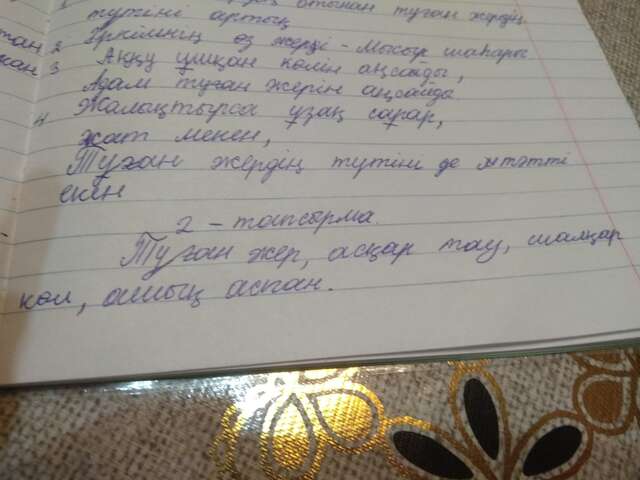 1 отынан туған жердің
түтіні артық
2 Әркімнің өз жері - Мысыр шаһары
3 Аққу ұшқан көлін аңсайды,
Адам туған жерін аңсайды
4 Жалықтырса ұзақ сапар,
жат мекен,
Туған жердің түтіні де тәтті
екен
2 - тапсырма.
Туған жер, асқар тау, шалқар
көл, ашық аспан.
тан
кан